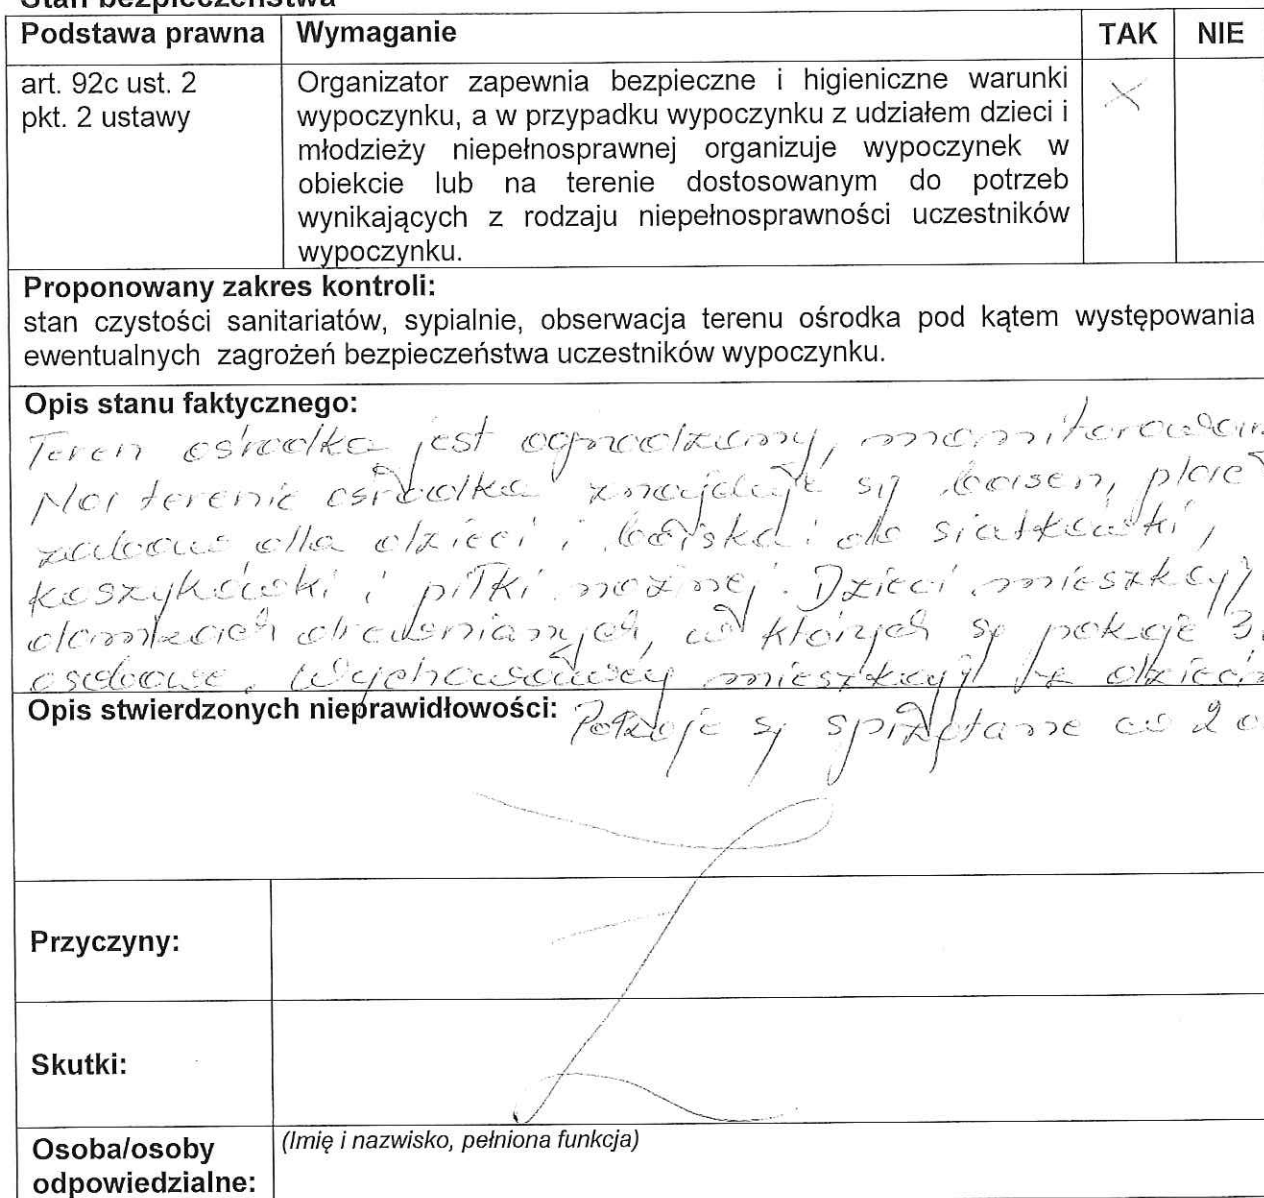 Stan bezpieczeństwa
Podstawa prawna Wymaganie TAK NIE
art. 92c ust. 2
pkt. 2 ustawy
Organizator zapewnia bezpieczne i higieniczne warunki
wypoczynku, a w przypadku wypoczynku z udziałem dzieci i
młodzieży niepełnosprawnej organizuje wypoczynek w
obiekcie lub na terenie dostosowanym do potrzeb
wynikających z rodzaju niepełnosprawności uczestników
wypoczynku.
X
Proponowany zakres kontroli:
stan czystości sanitariatów, sypialnie, obserwacja terenu ośrodka pod kątem występowania
ewentualnych zagrożeń bezpieczeństwa uczestników wypoczynku.
Opis stanu faktycznego:
Teren ośrodka jest ogrodzony, monitorowan
Na terenie ośrodka znajduje się basen, plac
zabaw dla dzieci i boiska do siatkówki,
koszykówki i piłki nożnej. Dzieci mieszkają
domkach drewnianych, w których są pokoje 3
osobowe. Wychowawcy mieszkają z dziećm
Opis stwierdzonych nieprawidłowości: Pokoje są sprzątane co 2
Przyczyny:
Skutki:
Osoba/osoby
odpowiedzialne:
(Imię i nazwisko, pełniona funkcja)